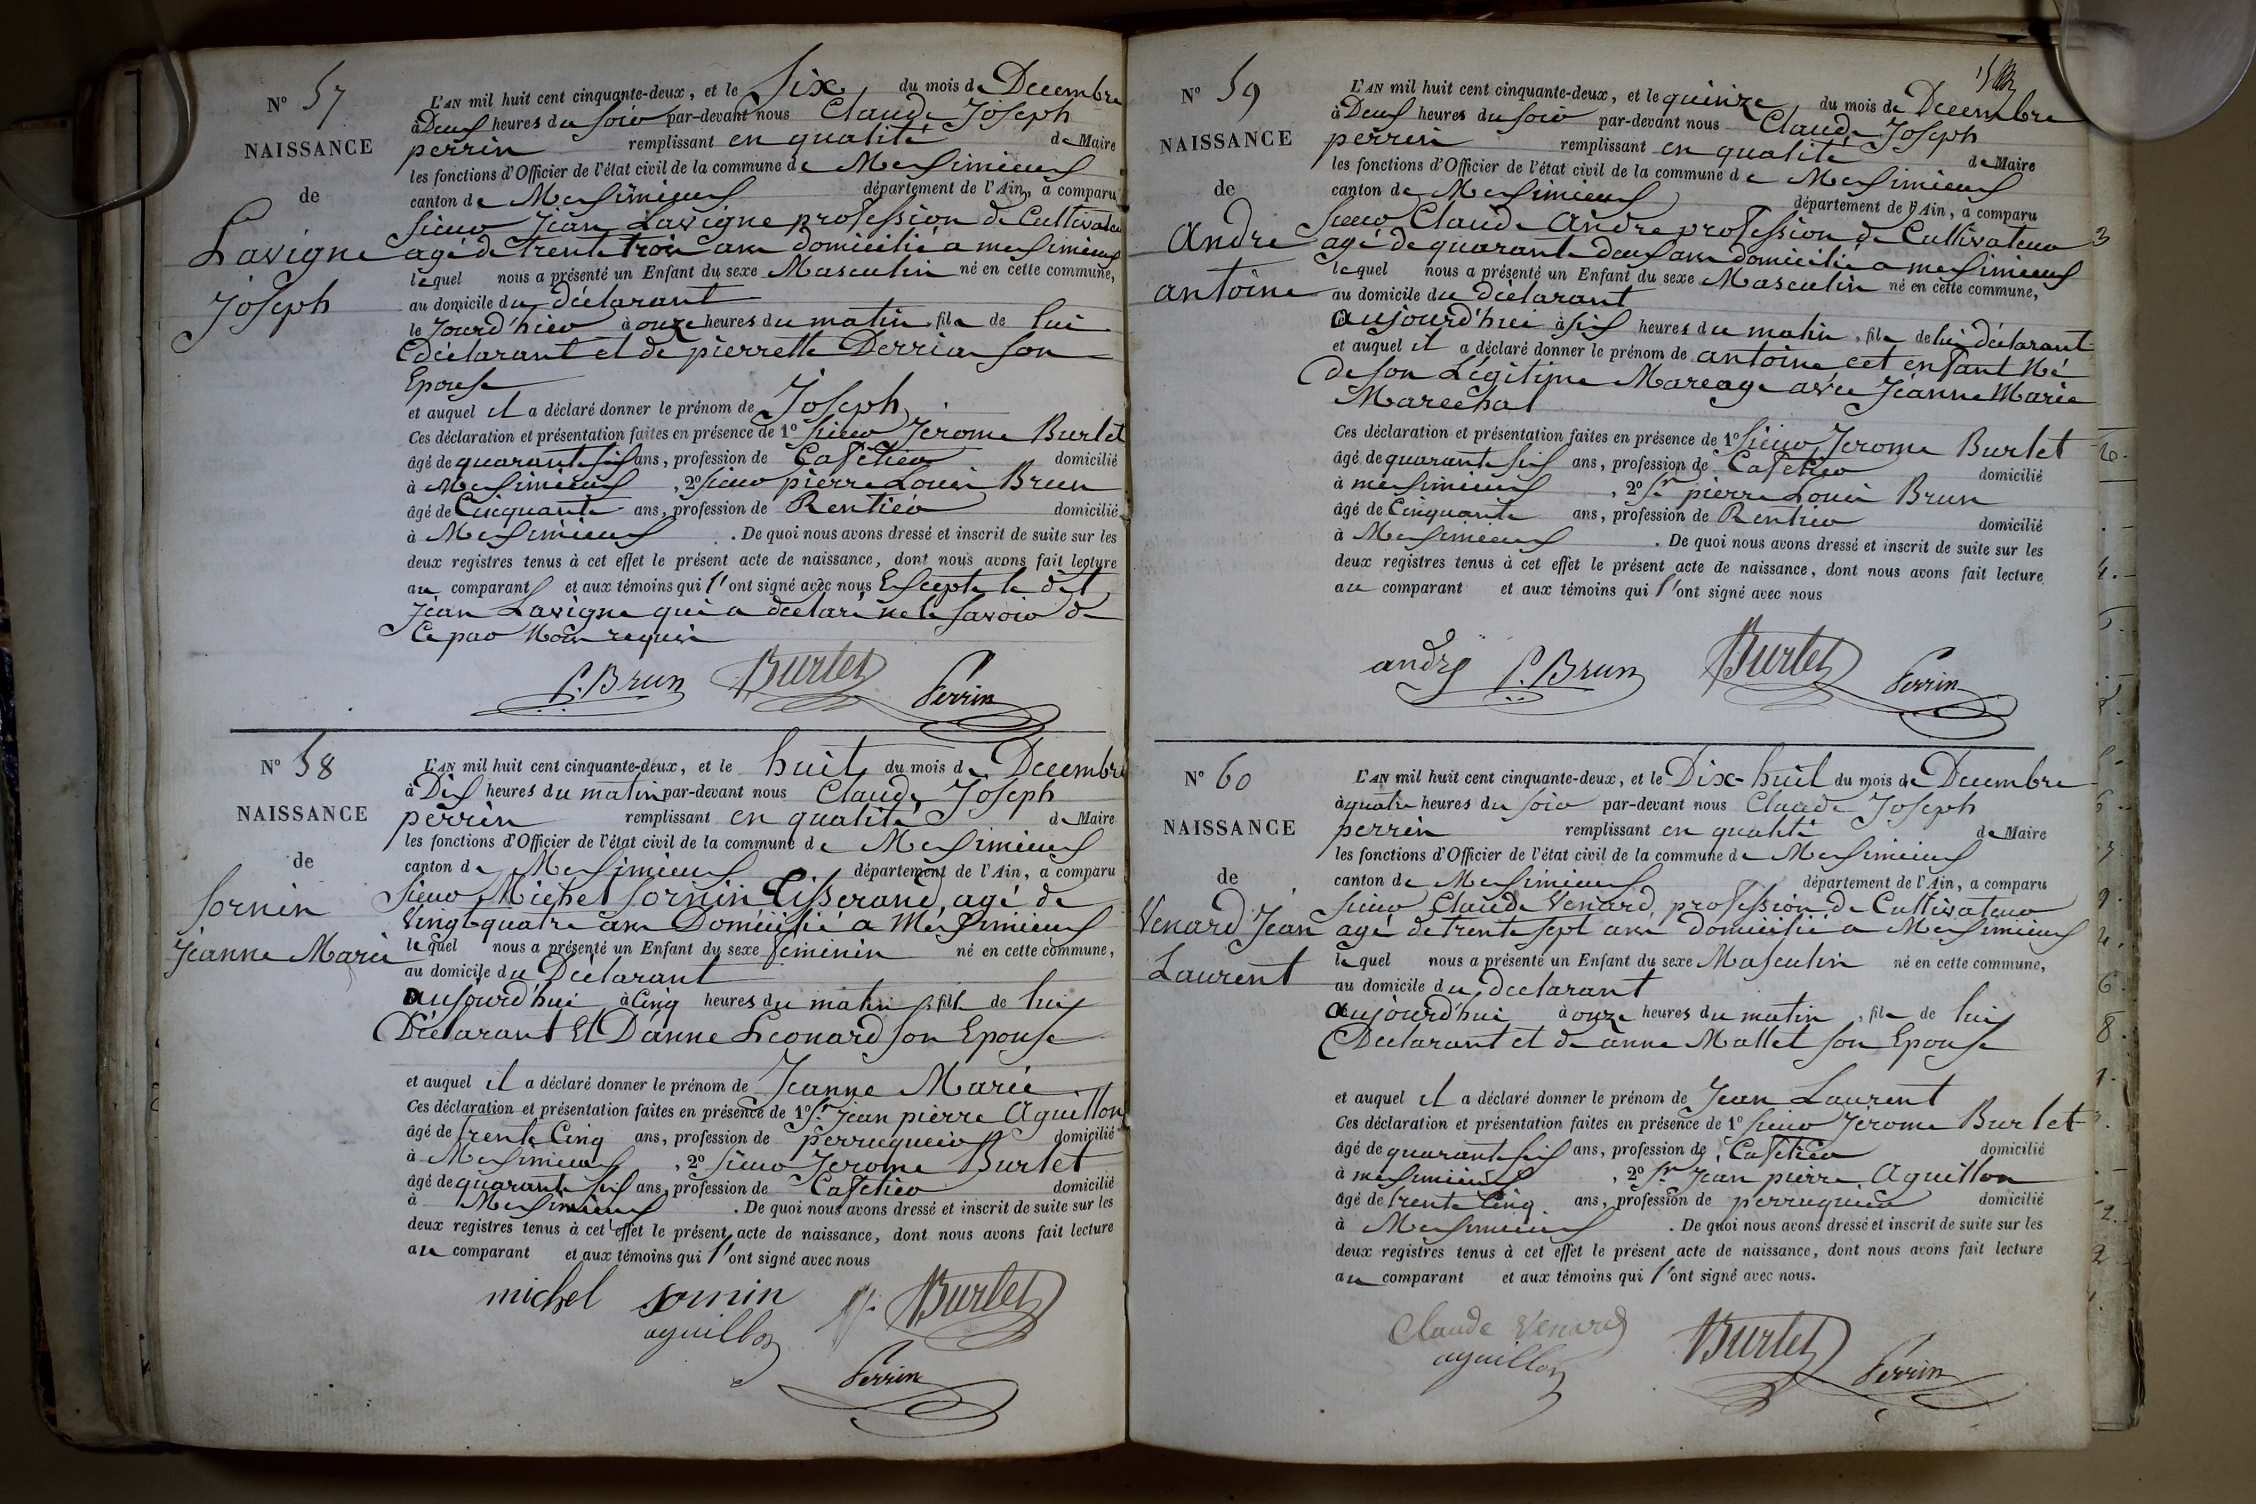 N° 57
NAISSANCE
de
Lavigne
Joseph
L'AN mil huit cent cinquante-deux, et le Six du mois de Decembre
à Deux heures du soir par-devant nous Claude Joseph
perrin remplissant en qualité de Maire
les fonctions d'Officier de l'état civil de la commune de Meximieux
canton de Meximieux département de l'Ain, a comparu
Sieur Jean Lavigne profession de Cultivateur
agé de trente trois ans domicilié a meximieux
lequel nous a présenté un Enfant du sexe Masculin né en cette commune,
au domicile du déclarant
le Jourd'hier à onze heures du matin, fils de lui
déclarant et de pierrette Derrias son
Epouse
et auquel il a déclaré donner le prénom de Joseph
Ces déclaration et présentation faites en présence de 1° Sieur Jerome Burlet
âgé de quarante six ans, profession de Cafetier domicilié
à Meximieux, 2° Sieur pierre Louis Brun
âgé de Cinquante ans, profession de Rentier domicilié
à Meximieux. De quoi nous avons dressé et inscrit de suite sur les
deux registres tenus à cet effet le présent acte de naissance, dont nous avons fait lecture
au comparant et aux témoins qui l'ont signé avec nous Excepte le dit
Jean Lavigne qui a declaré ne le savoir de
Ce par Nous requis
P. Brun Burlet Perrin
N° 58
NAISSANCE
de
Sornin
Jeanne Marie
L'AN mil huit cent cinquante-deux, et le huit du mois de Decembre
à Dix heures du matin par-devant nous Claude Joseph
perrin remplissant en qualité de Maire
les fonctions d'Officier de l'état civil de la commune de Meximieux
canton de Meximieux département de l'Ain, a comparu
Sieur Michel Sornin Tisserand, agé de
Vingt quatre ans Domicilié a Meximieux
lequel nous a présenté un Enfant du sexe feminin né en cette commune,
au domicile du Declarant
aujourd'hui à Cinq heures du matin, fille de lui
Déclarant Et D'anne Leonard son Epouse
et auquel il a déclaré donner le prénom de Jeanne Marie
Ces déclaration et présentation faites en présence de 1° Sr Jean pierre Aguillon
âgé de trente Cinq ans, profession de perruquier domicilié
à Meximieux, 2° Sieur Jerome Burlet
âgé de quarante six ans, profession de Cafetier domicilié
à Meximieux. De quoi nous avons dressé et inscrit de suite sur les
deux registres tenus à cet effet le présent acte de naissance, dont nous avons fait lecture
au comparant et aux témoins qui l'ont signé avec nous
michel sornin Burlet
aguillon
Perrin
N° 59
NAISSANCE
de
André
antoine
L'AN mil huit cent cinquante-deux, et le quinze du mois de Decembre
à Deux heures du soir par-devant nous Claude Joseph
perrin remplissant en qualité de Maire
les fonctions d'Officier de l'état civil de la commune de Meximieux
canton de Meximieux département de l'Ain, a comparu
Sieur Claude André profession de Cultivateur
agé de quarante deux ans domicilié a meximieux
lequel nous a présenté un Enfant du sexe Masculin né en cette commune,
au domicile du déclarant
aujourd'hui à six heures du matin, fils de lui déclarant
et auquel il a déclaré donner le prénom de antoine cet enfant Né
de son Légitime Mareage avec Jeanne Marie
Marechal
Ces déclaration et présentation faites en présence de 1° Sieur Jerome Burlet
âgé de quarante six ans, profession de Cafetier domicilié
à meximieux, 2° Sr pierre Louis Brun
âgé de Cinquante ans, profession de Rentier domicilié
à Meximieux. De quoi nous avons dressé et inscrit de suite sur les
deux registres tenus à cet effet le présent acte de naissance, dont nous avons fait lecture
au comparant et aux témoins qui l'ont signé avec nous
andré P. Brun Burlet Perrin
N° 60
NAISSANCE
de
Venard Jean
Laurent
L'AN mil huit cent cinquante-deux, et le Dix-huit du mois de Decembre
à quatre heures du soir par-devant nous Claude Joseph
perrin remplissant en qualité de Maire
les fonctions d'Officier de l'état civil de la commune de Meximieux
canton de Meximieux département de l'Ain, a comparu
Sieur Claude Venard, profession de Cultivateur
agé de trente sept ans domicilié a Meximieux
lequel nous a présenté un Enfant du sexe Masculin né en cette commune,
au domicile du declarant
aujourd'hui à onze heures du matin, fils de lui
Declarant et de anne Mallet son Epouse
et auquel il a déclaré donner le prénom de Jean Laurent
Ces déclaration et présentation faites en présence de 1° Sieur Jerome Burlet
âgé de quarante six ans, profession de Cafetier domicilié
à meximieux, 2° Sr Jean pierre Aguillon
âgé de trente Cinq ans, profession de perruquier domicilié
à Meximieux. De quoi nous avons dressé et inscrit de suite sur les
deux registres tenus à cet effet le présent acte de naissance, dont nous avons fait lecture
au comparant et aux témoins qui l'ont signé avec nous.
Claude Venard Burlet
aguillon Perrin